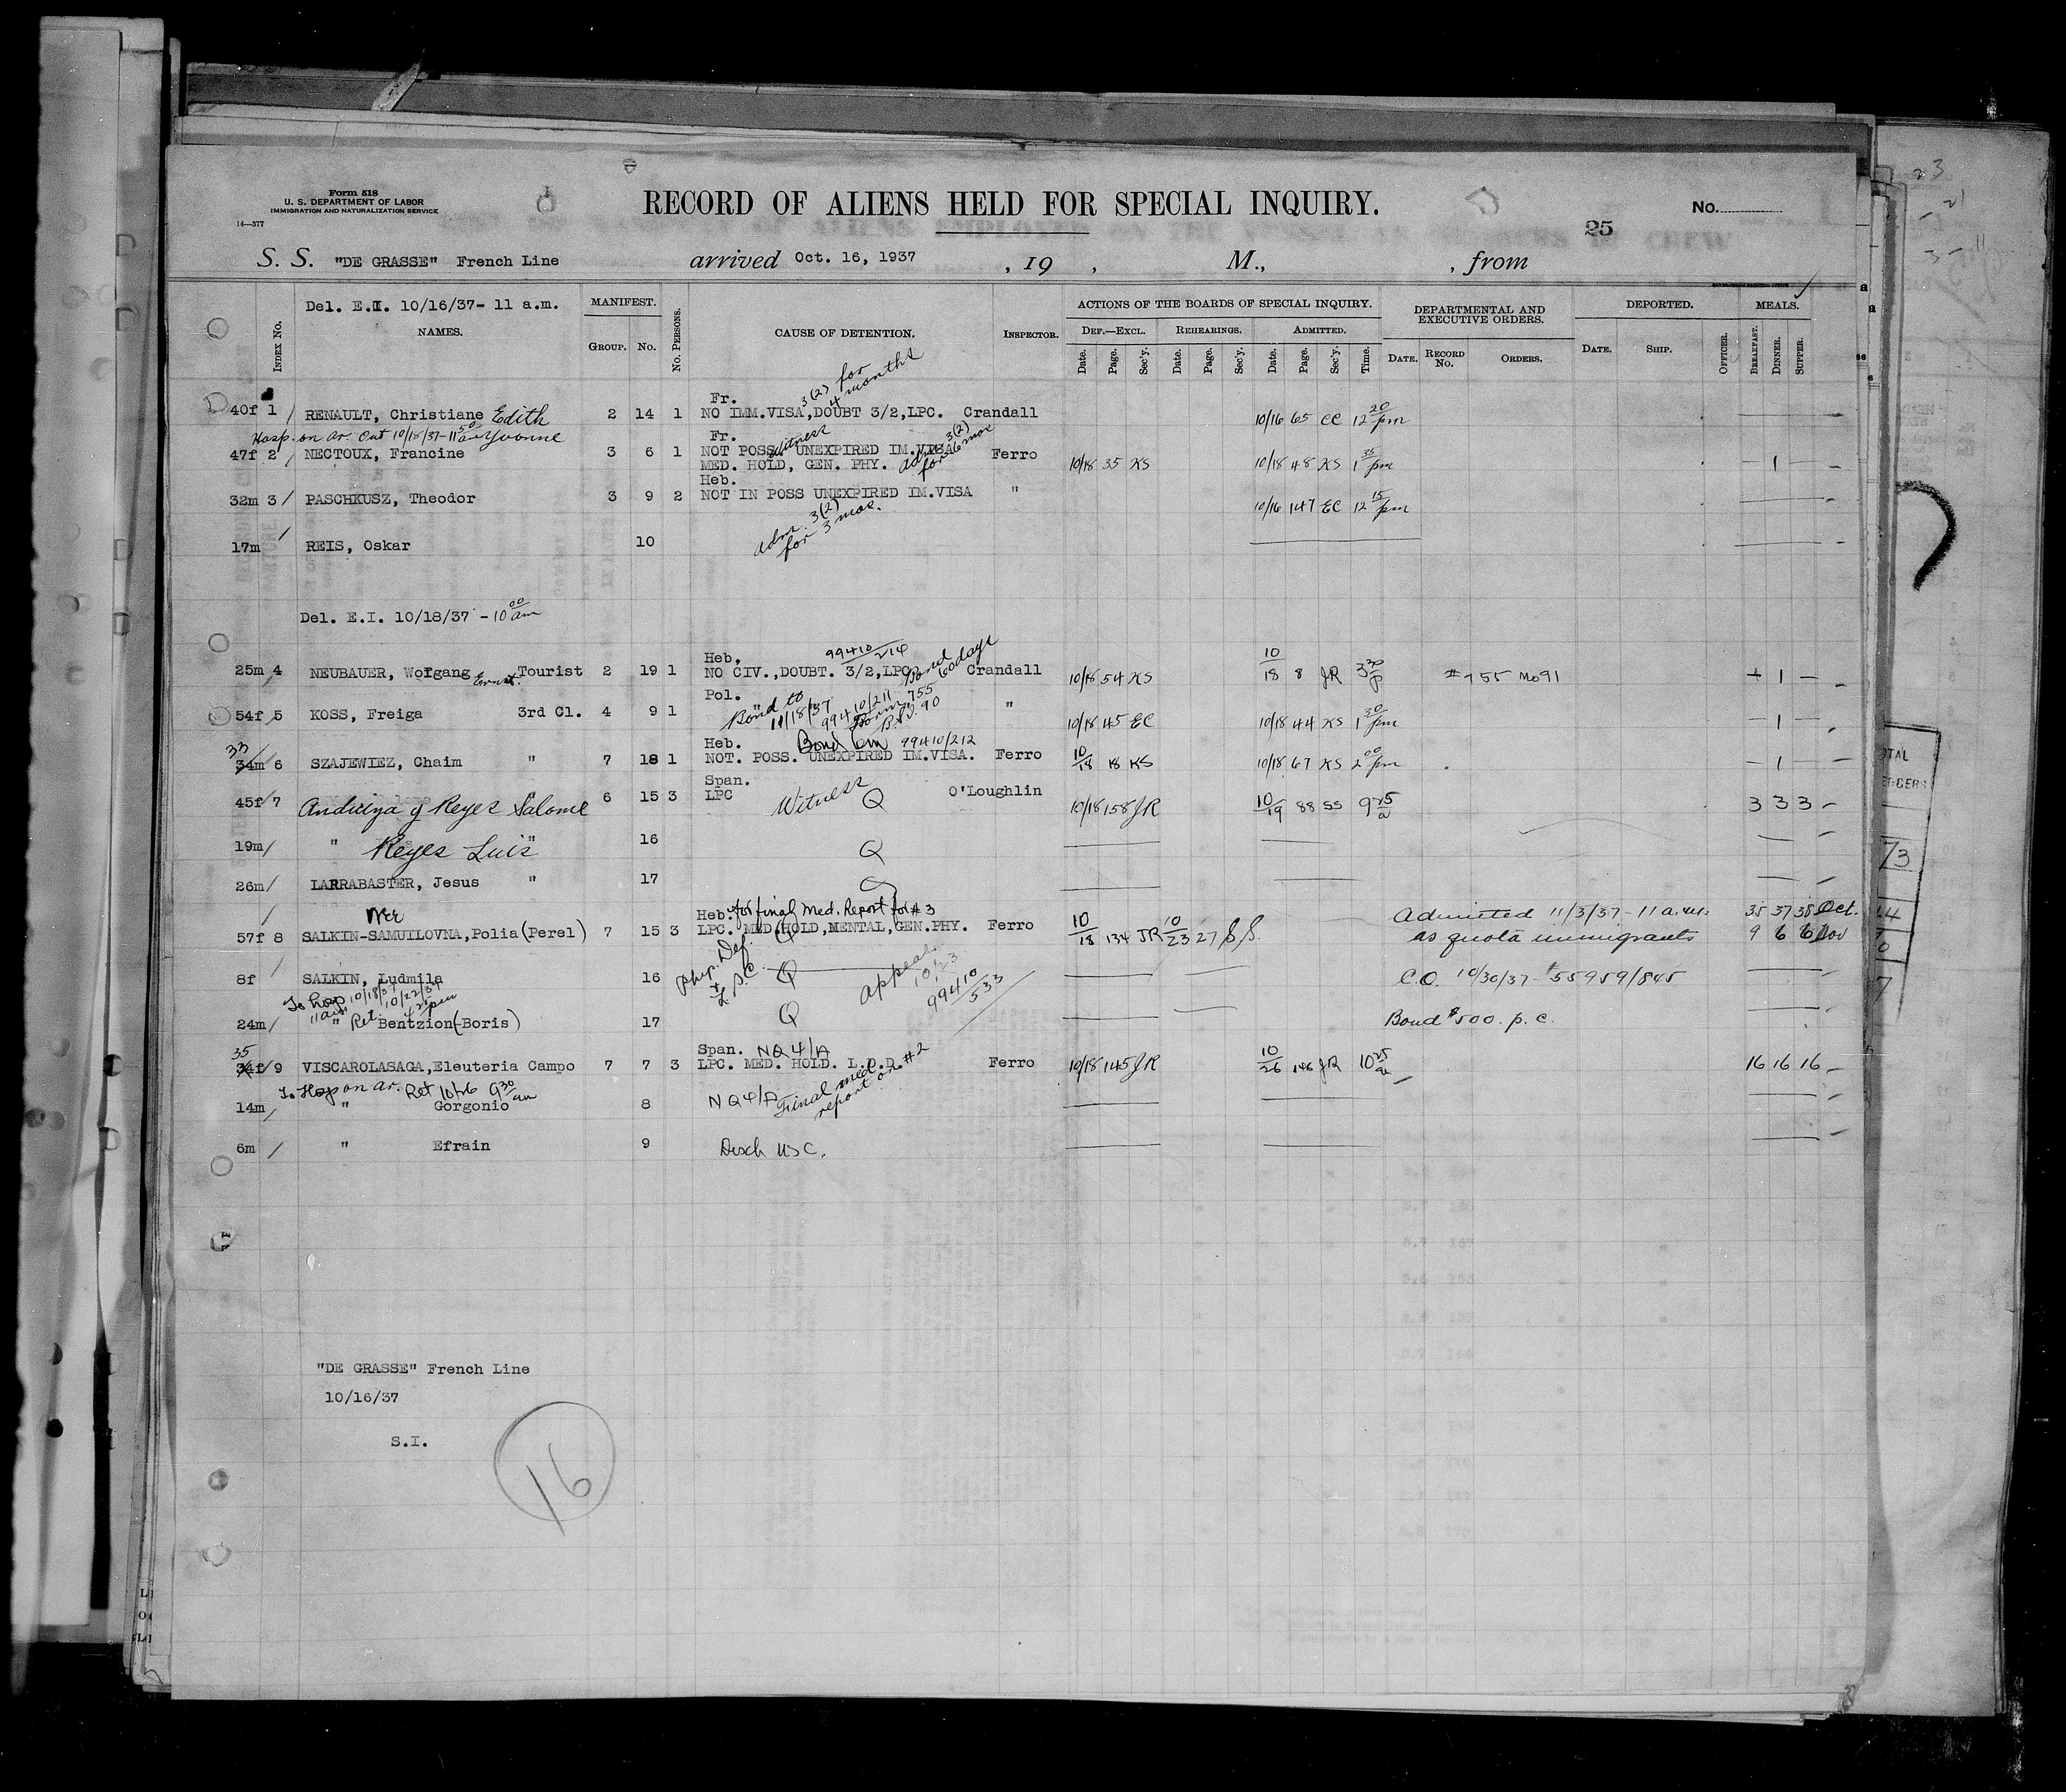 Form 518
U. S. DEPARTMENT OF LABOR
IMMIGRATION AND NATURALIZATION SERVICE
14—377
RECORD OF ALIENS HELD FOR SPECIAL INQUIRY.
No.
25
S. S. "DE GRASSE" French Line arrived Oct. 16, 1937 , 19 , M., , from
Del. E.I. 10/16/37- 11 a.m.
INDEX No. NAMES. MANIFEST. GROUP. No. No. PERSONS. CAUSE OF DETENTION. INSPECTOR.
ACTIONS OF THE BOARDS OF SPECIAL INQUIRY. DEPARTMENTAL AND EXECUTIVE ORDERS. DEPORTED. MEALS.
DEF.—EXCL. REHEARINGS. ADMITTED.
Date. Page. Sec'y. Date. Page. Sec'y. Date. Page. Sec'y. Time. DATE. RECORD No. ORDERS. DATE. SHIP. OFFICER. BREAKFAST. DINNER. SUPPER.
3(2) for 4 months
Fr.
40f 1 RENAULT, Christiane Edith 2 14 1 NO IMM.VISA,DOUBT 3/2,LPC. Crandall 10/16 65 CC 12 20 pm
Hosp. on ar. Out 10/18/37-11 50 am Yvonne
Fr. witness
47f 2 NECTOUX, Francine 3 6 1 NOT POSS. UNEXPIRED IM.VISA Ferro 10/18 35 KS 10/18 48 KS 1 35 pm 1
MED. HOLD, GEN. PHY. adm 3(2) for 6 mos
Heb.
32m 3 PASCHKUSZ, Theodor 3 9 2 NOT IN POSS UNEXPIRED IM.VISA " 10/16 147 EC 12 15 pm
adm. 3(2) for 3 mos.
17m REIS, Oskar 10
Del. E.I. 10/18/37 - 10 00 am
Heb. 99410/214 Bond 60 days
25m 4 NEUBAUER, Wofgang Ernst. Tourist 2 19 1 NO CIV.,DOUBT. 3/2,LPC Crandall 10/18 54 KS 10/18 8 JR 3 30 p #755 No 91 1
Pol.
54f 5 KOSS, Freiga 3rd Cl. 4 9 1 " " 10/18 45 EC 10/18 44 KS 1 30 pm 1
Bond to 11/18/37 99410/211 Form 755 B.d. 90
Heb. Bond 6m 99410/212
33 34m 6 SZAJEWIEZ, Chaim " 7 18 1 NOT. POSS. UNEXPIRED IM.VISA. Ferro 10/18 18 KS 10/18 67 KS 2 00 pm 1
Span.
45f 7 Salome 6 15 3 LPC Witness Q O'Loughlin 10/18 158 JR 10/19 88 SS 9 25 a 3 3 3
19m " Reyes Luis " 16 Q
26m LARRABASTER, Jesus " 17 Q
Heb. for final Med. Report for #3
57f 8 SALKIN-SAMUILOVNA,Polia (Perel) 7 15 3 LPC. MED HOLD,MENTAL,GEN.PHY. Ferro 10/18 134 JR 10/23 27 S.S. Admitted 11/3/37 - 11 a.m. 35 37 38 Oct.
as quota immigrants 9 6 6 Nov
8f SALKIN, Ludmila 16 Phys. Def. + L.P.C. Q appeal 10/23 99410/533 C.O. 10/30/37 - #55959/845
To hosp 10/18/37 11 am Ret. 10/22/37 4 25 pm
24m " Bentzion (-Boris) 17 Q Bond $500. p. c.
Span. NQ 4/A
35 34f 9 VISCAROLASAGA,Eleuteria Campo 7 7 3 LPC. MED. HOLD. L.O.D. #2 Ferro 10/18 145 JR 10/26 146 JR 10 25 a 16 16 16
To Hosp on ar. Ret 10/26 9 30 am
14m " Gorgonio 8 NQ 4/A Final med report on
6m " Efrain 9 Disch USC.
"DE GRASSE" French Line
10/16/37
S.I.
16